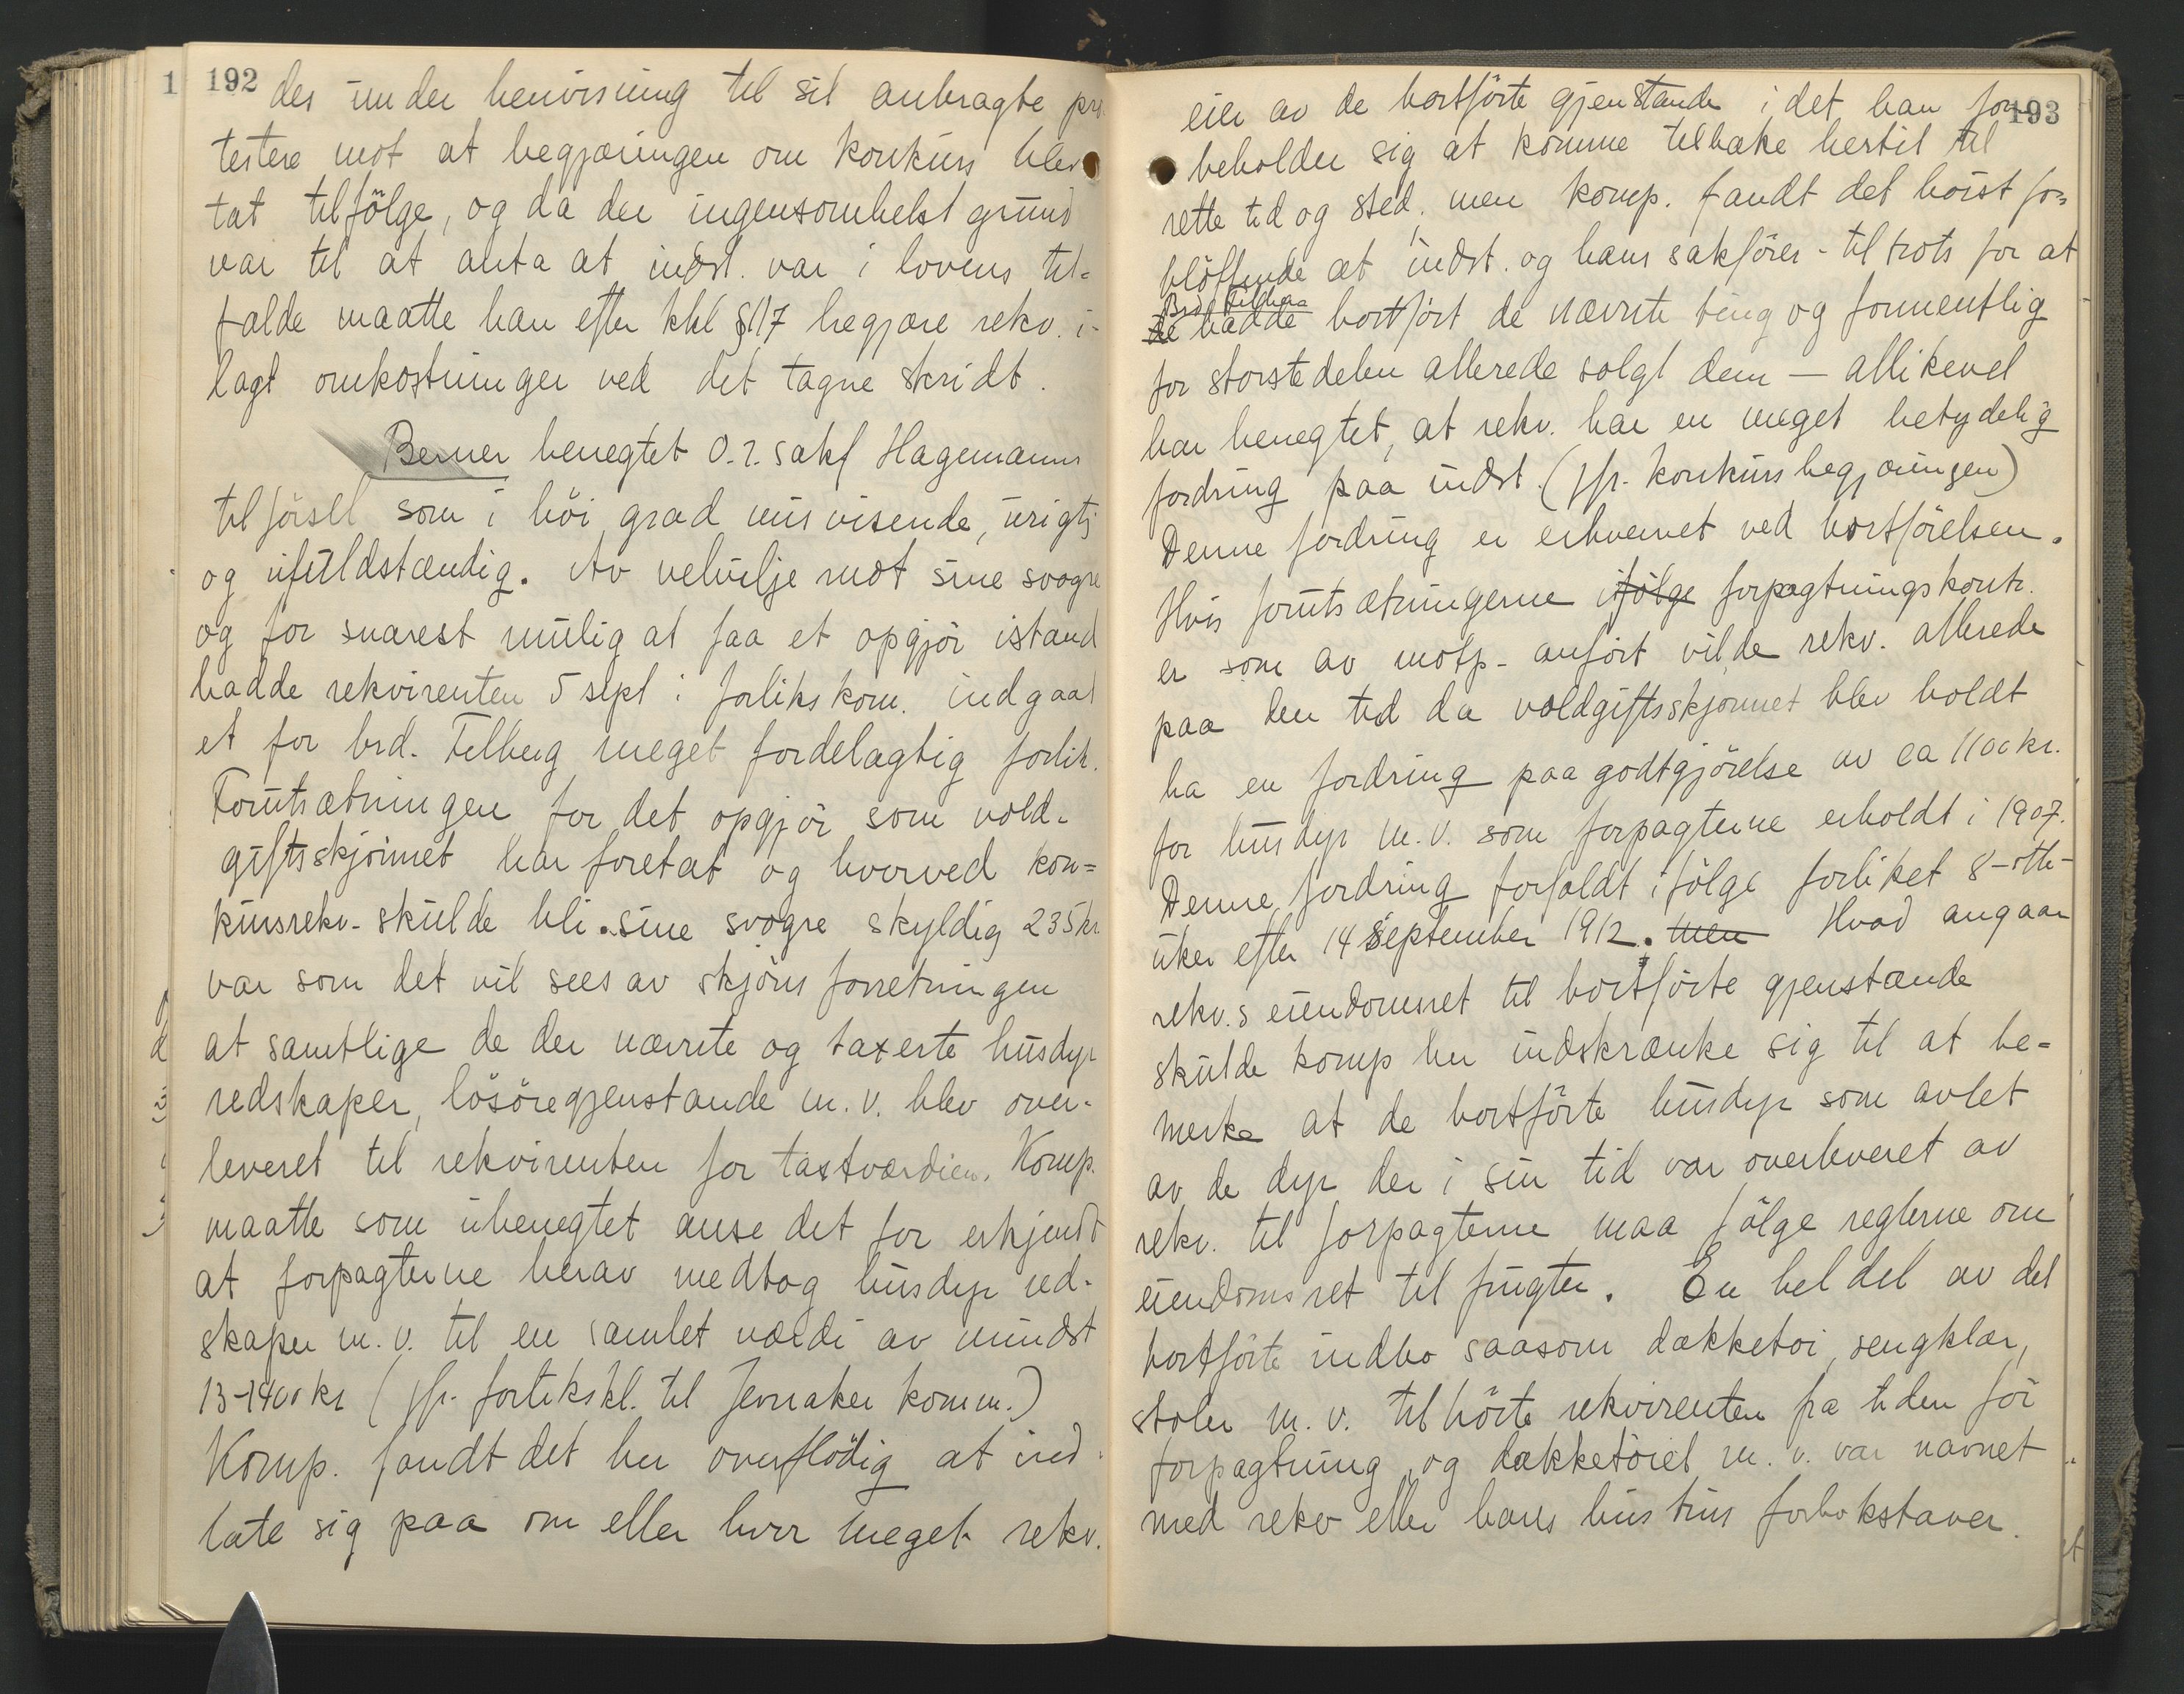 192
des under henvisning til sit anbragte pro
testere mot at begjæringen om konkurs blev
tat tilfölge, og da der ingensomhelst grund
var til at anta at indst. var i lovens til-
falde maatte han efter kkl §117 begjære rekv. i-
lagt omkostninger ved det tagne skridt.
Berner benegtet O.r. sakf Hagemanns
tilförsel som i höi grad misvisende, urigtj
og ufuldstændig. Av velvilje mot sine svogre
og for snarest mulig at faa et opgjör istand
hadde rekvirenten 5 sept i forlikskom. indgaat
et for brd. Filberg meget fordelagtig forlik.
Forutsætningen for det opgjör som vold-
giftsskjönnet har foretat og hvorved kon=
kursrekv. skulde bli sine svogre skyldig 235 kr
var som det vil sees av skjöns forretningen
at samtlige de der nævnte og taxerte husdyr
redskaper, lösöregjenstande m.v. blev over-
leveret til rekvirenten for tastværdien. Komp.
maatte som ubenegtet anse det for erkjendt
at forpagterne herav medtog husdyr red-
skaper m.v. til en samlet værdi av mindst
13-1400 kr (jfr. forlikskl. til Jevnaker komm.)
Komp. fandt det her overflödig at ind-
late sig paa om eller hvor meget rekv.
193
eier av de bortförte gjenstande i det han for-
beholder sig at komme tilbake hertil til
rette tid og sted, men komp. fandt det höist for=
blöffende at indst. og hans sakförer - til trots for at
Brd Filberg
de hadde bortfört de nævnte ting og formentlig
for störstedelen allerede solgt dem — allikevel
har benegtet, at rekv. har en meget betydelig
fordring paa indst. (jfr. konkursbegjæringen)
Denne fordring er erhvervet ved bortförelsen.
Hvis forutsætningerne ifölge forpagtningskontr.
er som av motp. anfört vilde rekv. allerede
paa den tid da voldgiftsskjönnet blev holdt
ha en fordring paa godtgjörelse av ca 1100 kr.
for husdyr m.v. som forpagterne erholdt i 1907.
Denne fordring forfaldt ifölge forliket 8-otte-
uker efter 14 September 1912. men Hvad angaar
rekv.s eiendomsret til bortförte gjenstande
skulde komp her indskrænke sig til at be=
merke at de bortförte husdyr som avlet
av de dyr der i sin tid var overleveret av
rekv. til forpagterne maa fölge reglerne om
eiendomsret til frugter. En hel del av det
bortförte indbo saasom dækketöi, sengklær,
stoler m.v. tilhörte rekvirenten fra tiden för
forpagtning, og dækketöiet m.v. var navnet
med rekv eller hans hustrus forbokstaver.